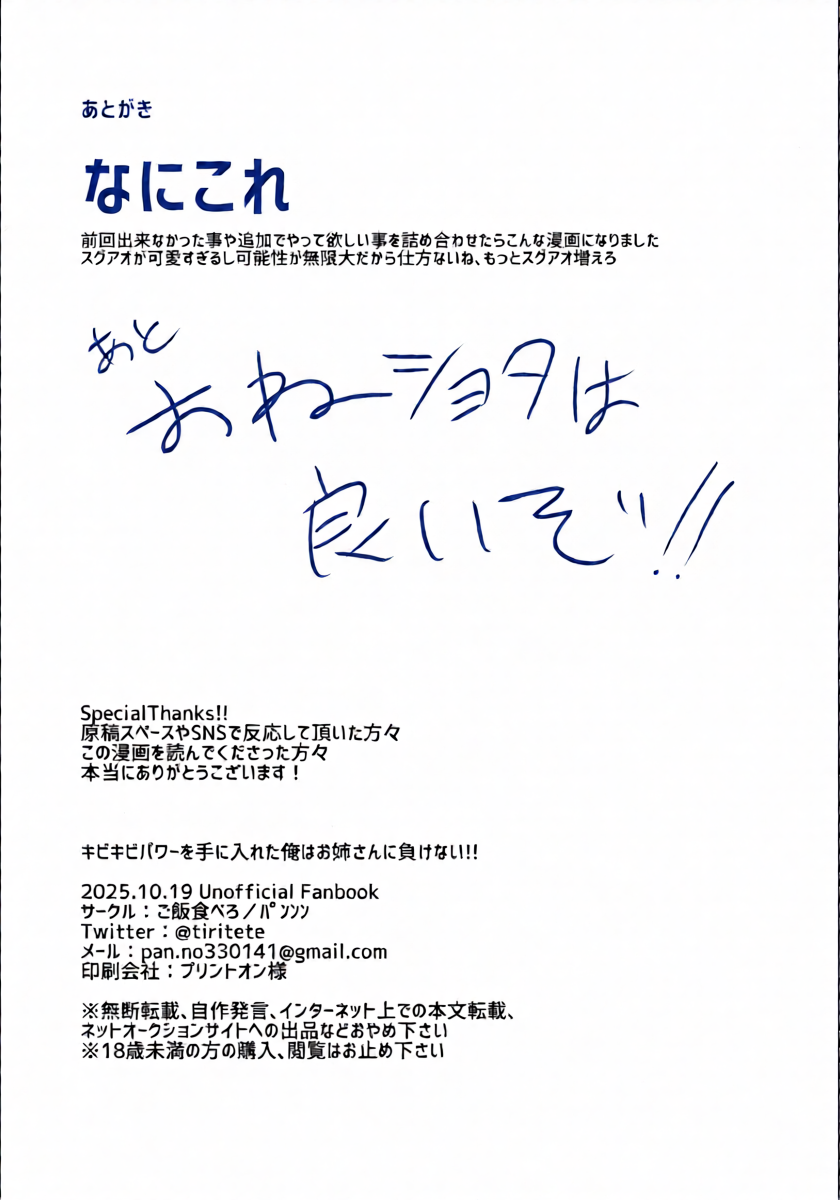 あとがき
なにこれ
前回出来なかった事や追加でやって欲しい事を詰め合わせたらこんな漫画になりました
スグアオが可愛すぎるし可能性が無限大だから仕方ないね、もっとスグアオ増えろ
あと
おねーショタは
良いぞ!!
SpecialThanks!!
原稿スペースやSNSで反応して頂いた方々
この漫画を読んでくださった方々
本当にありがとうございます！
キビキビパワーを手に入れた俺はお姉さんに負けない!!
2025.10.19 Unofficial Fanbook
サークル：ご飯食べろ／ﾊﾟﾝﾝﾝ
Twitter：@tiritete
メール：pan.no330141@gmail.com
印刷会社：プリントオン様
※無断転載、自作発言、インターネット上での本文転載、
ネットオークションサイトへの出品などおやめ下さい
※18歳未満の方の購入、閲覧はお止め下さい